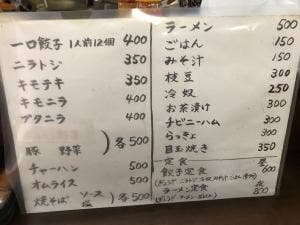 一口餃子 1人前12個 400
ニラトジ 350
キモテキ 350
キモニラ 400
ブタニラ 400
豚 野菜 ) 各500
チャーハン 500
オムライス 500
焼そば ソース 塩 ) 各500
ラーメン 500
ごはん 150
みそ汁 150
枝豆 300
冷奴 250
お茶漬け 300
チビニーハム 300
らっきょ 300
目玉焼き 350
定食
餃子定食 600
ラーメン定食 800